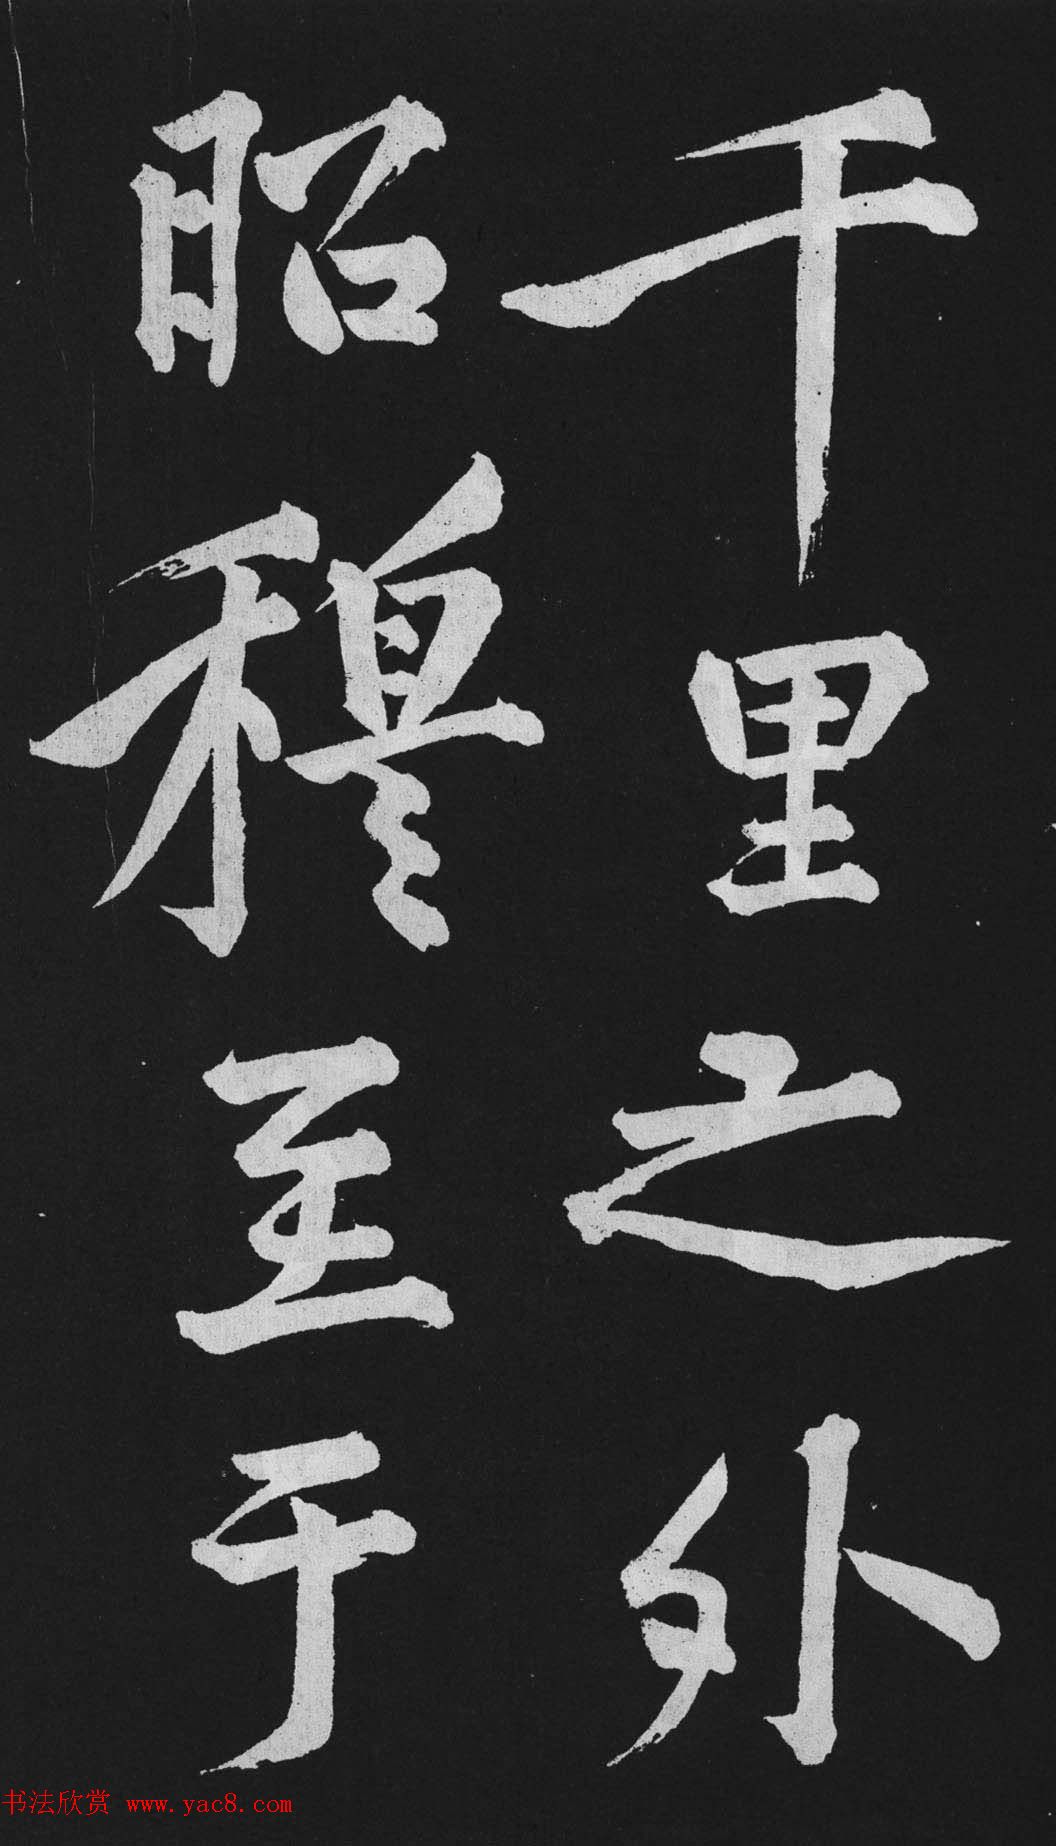 千里之外
昭穆至于
书法欣赏 www.yac8.com